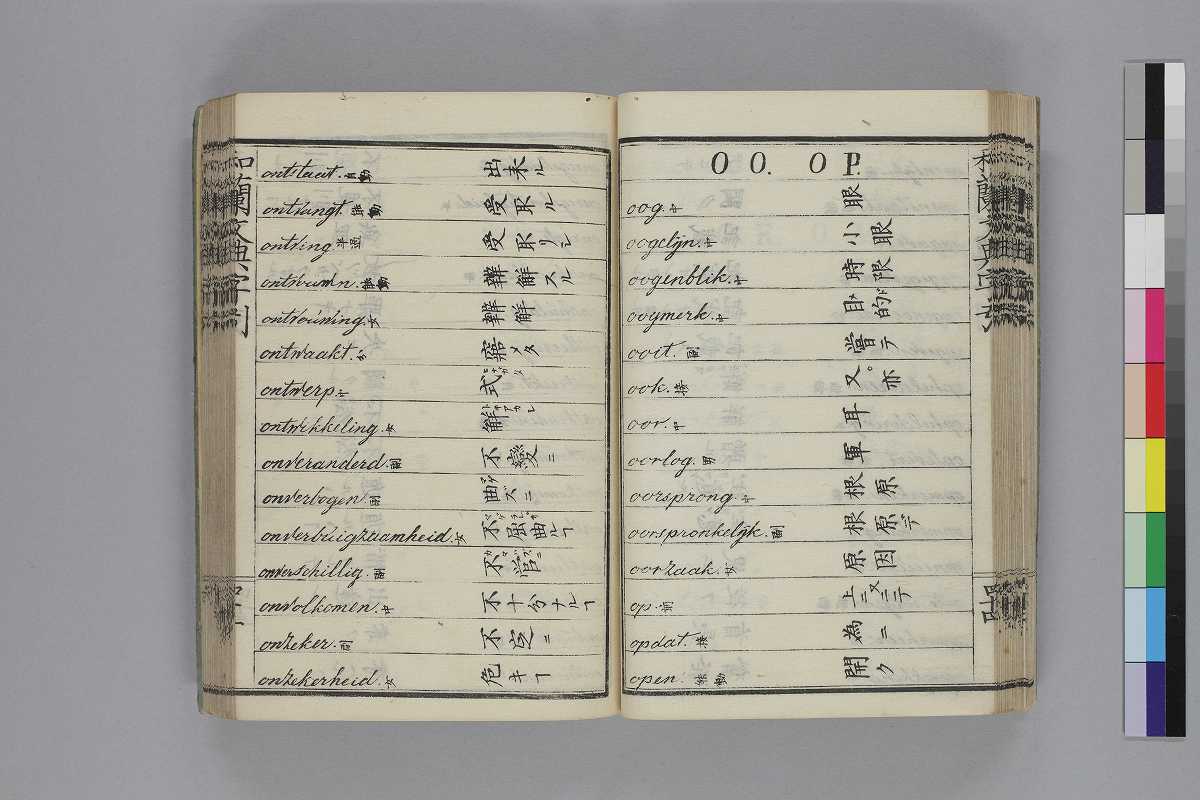 ontstaat. 自動 出来ル
ontvangt. 能動 受取ル
ontving 受取リシ
能動 辨解スル
ontvouwing. 女 辨解
ontwaakt. 寤メタ
ontwerp. 中 式
ontwikkeling. 女 解
onveranderd. 副 不變ニ
onverbogen. 副 曲ズニ
onverbuigzaamheid. 女 不屈曲ルヿ
onverschillig. 副 不管
onvolkomen. 中 不十分ナルヿ
onzeker. 副 不定ニ
onzekerheid. 女 危キヿ
OO. OP.
oog. 中 眼
oogelijn. 中 小眼
oogenblik. 中 時限
oogmerk. 中 目的
ooit. 副 嘗テ
ook. 接 又。亦
oor. 中 耳
oorlog. 男 軍
oorsprong. 中 根原
oorspronkelijk. 副 根原デ
oorzaak. 女 原因
op. 上ニ又ニテ
opdat. 接 為ニ
open. 能動 開ク